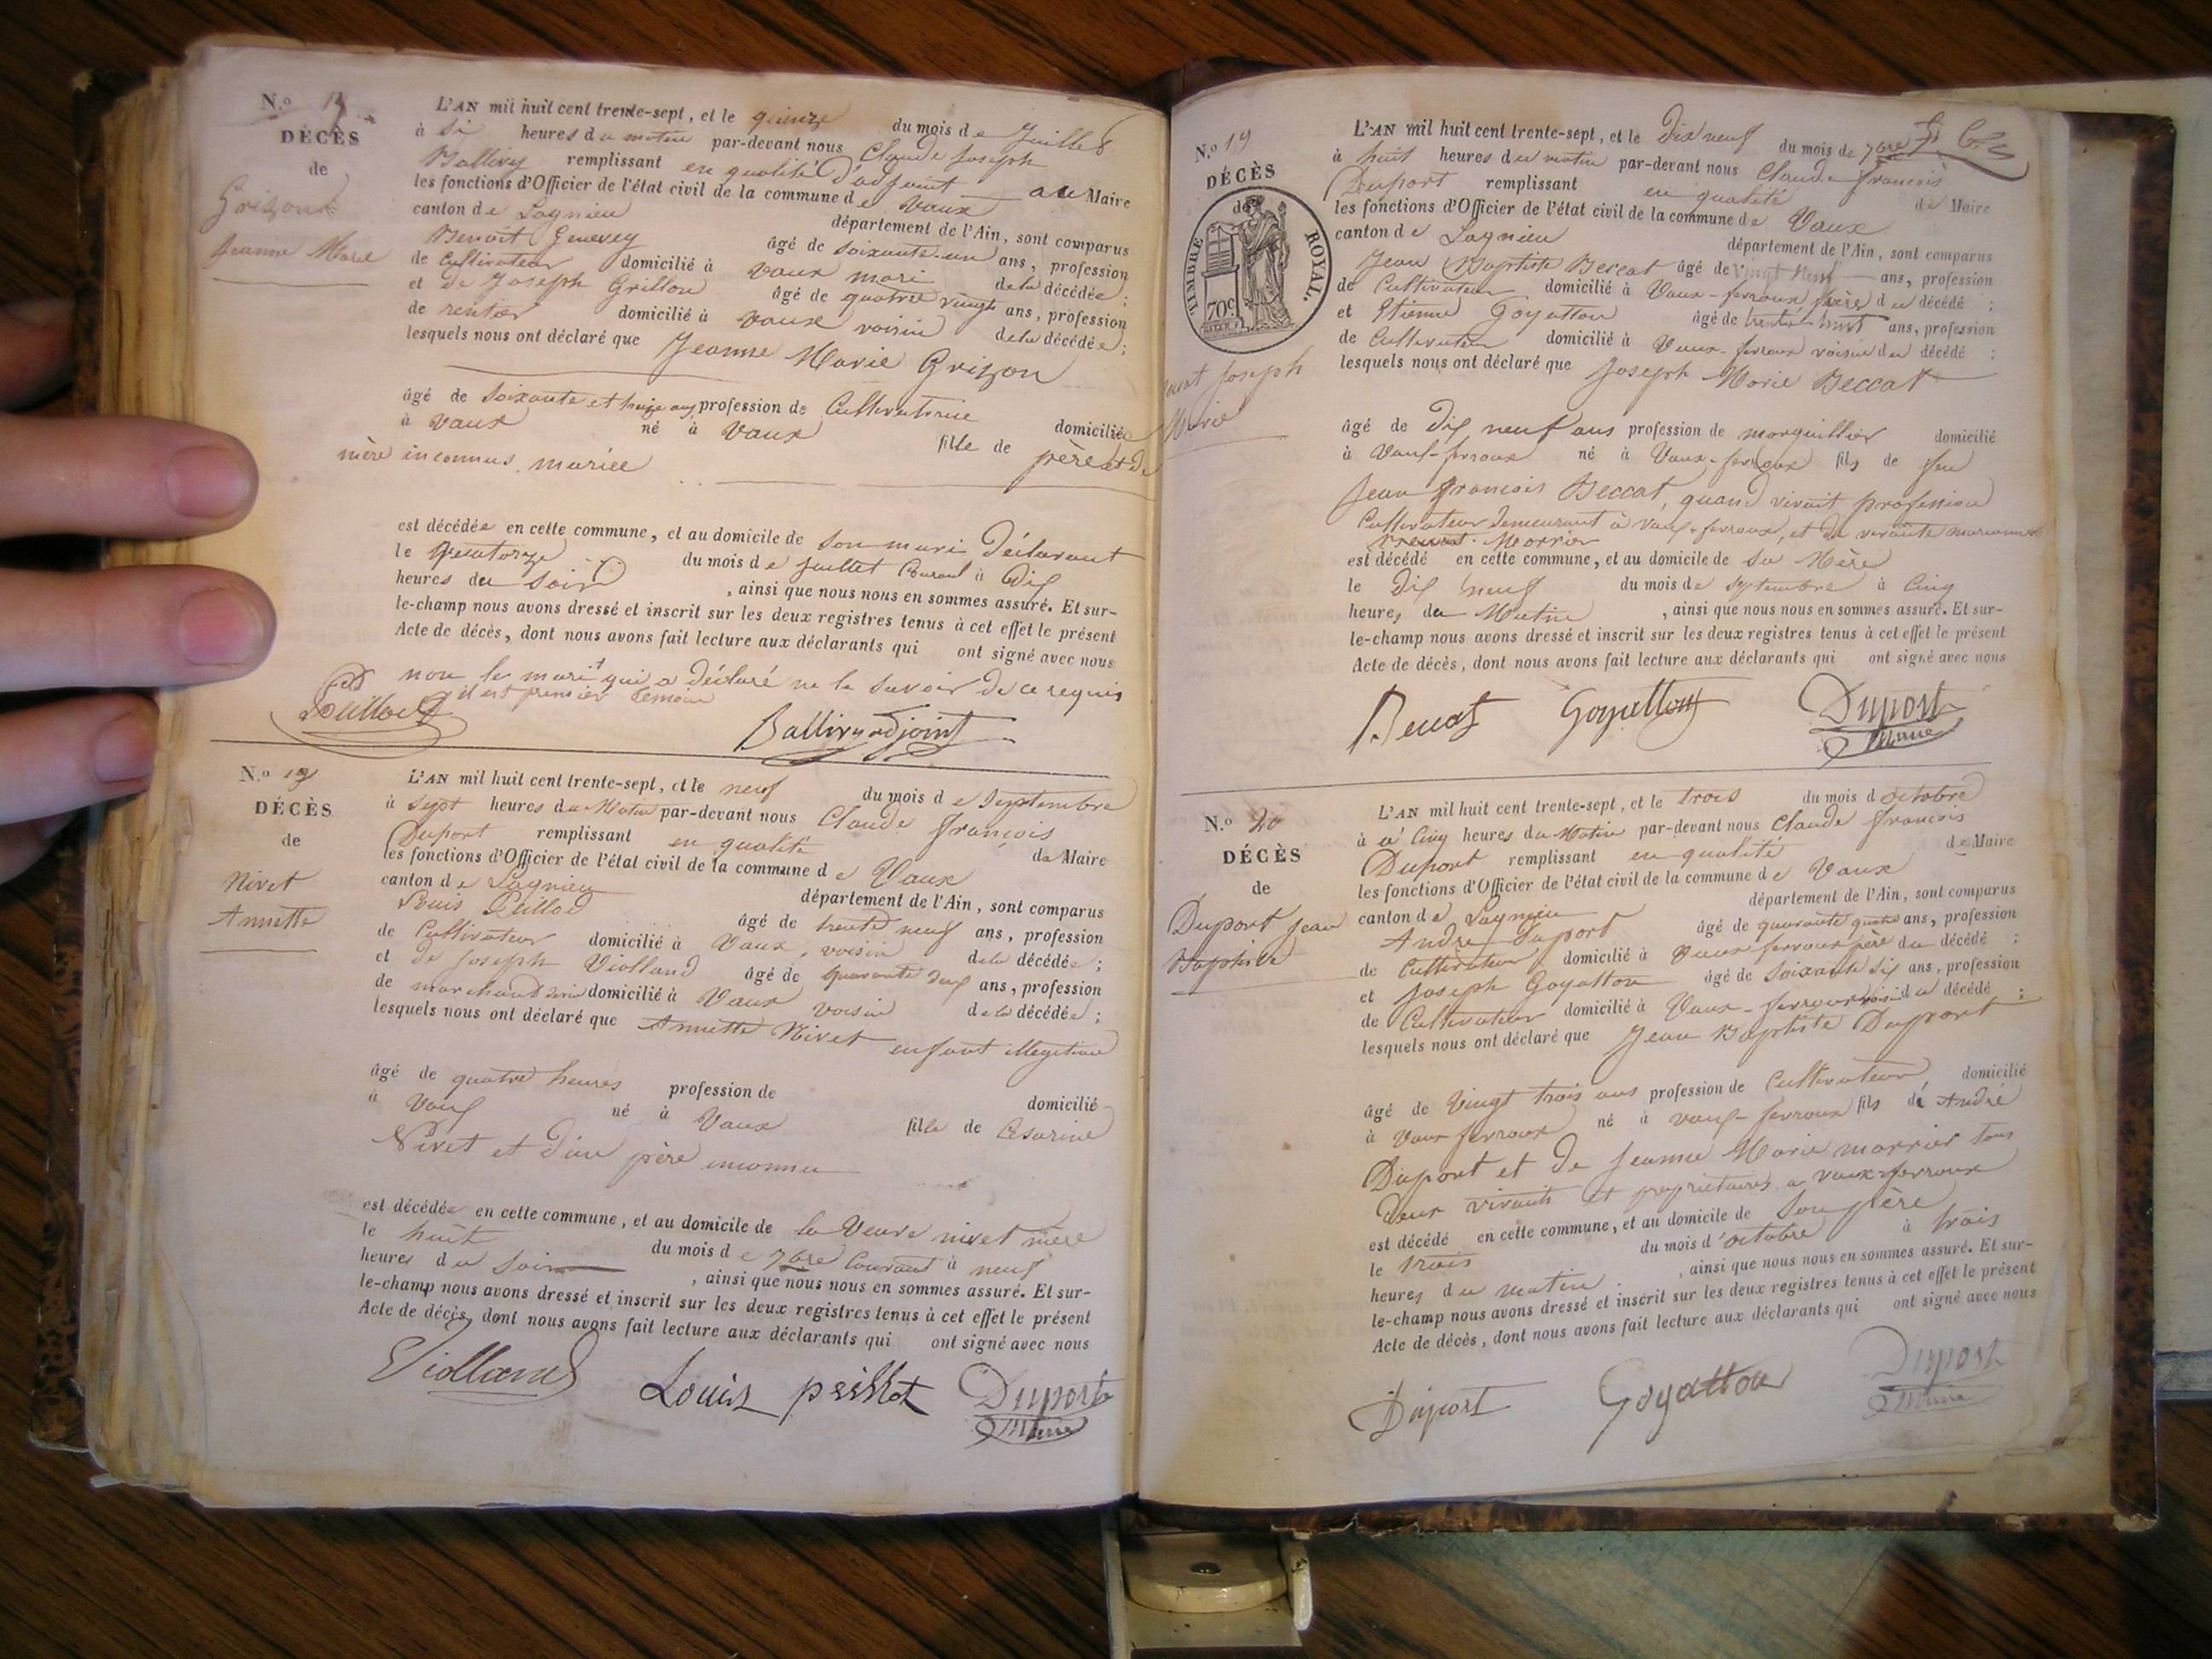 N.o 17
DÉCÈS
de
Grizon
Jeanne Marie
L'AN mil huit cent trente-sept, et le quinze du mois de Juillet
à si heures du matin par-devant nous Claude Joseph
Ballivy remplissant en qualité d'adjoint au Maire
les fonctions d'Officier de l'état civil de la commune de Vaux
canton de Lagnieu département de l'Ain, sont comparus
Benoit Genevey âgé de soixante-un ans, profession
de Cultivateur domicilié à Vaux mari de la décédée ;
et de Joseph Grillon âgé de quatre vingts ans, profession
de rentier domicilié à Vaux voisin de la décédée ;
lesquels nous ont déclaré que Jeanne Marie Grizon
âgé de soixante et treize ans profession de Cultivatrice domiciliée
à Vaux né à Vaux fille de père et de
mère inconnus, mariée
est décédée en cette commune, et au domicile de son mari déclarant
le quatorze du mois de Juillet Courant à dix
heures du soir , ainsi que nous nous en sommes assuré. Et sur-
le-champ nous avons dressé et inscrit sur les deux registres tenus à cet effet le présent
Acte de décès, dont nous avons fait lecture aux déclarants qui ont signé avec nous
non le mari qui a déclaré ne le savoir de ce requis
il est premier témoin
Ballivy adjoint
N.o 18
DÉCÈS
de
Nivet
Annette
L'AN mil huit cent trente-sept, et le neuf du mois de Septembre
à sept heures du Matin par-devant nous Claude François
Duport remplissant en qualité de Maire
les fonctions d'Officier de l'état civil de la commune de Vaux
canton de Lagnieu département de l'Ain, sont comparus
Louis Peillod âgé de trente neuf ans, profession
de Cultivateur domicilié à Vaux, voisin de la décédée ;
et de Joseph Violland âgé de quarante deux ans, profession
de marchand domicilié à Vaux voisin de la décédée ;
lesquels nous ont déclaré que Annette Nivet enfant illegitime
âgé de quatre heures profession de domicilié
à Vaux né à Vaux fille de Cesarine
Nivet et d'un père inconnu
est décédée en cette commune, et au domicile de la Veuve nivet mère
le huit du mois de 7bre Courant à neuf
heures du soir , ainsi que nous nous en sommes assuré. Et sur-
le-champ nous avons dressé et inscrit sur les deux registres tenus à cet effet le présent
Acte de décès, dont nous avons fait lecture aux déclarants qui ont signé avec nous
Violland Louis peillot Duport
Maire
N.o 19
DÉCÈS
de
TIMBRE ROYAL.
70c
Joseph
Marie
L'AN mil huit cent trente-sept, et le Dix neuf du mois de 7bre
à huit heures du matin par-devant nous Claude François
Duport remplissant en qualité de Maire
les fonctions d'Officier de l'état civil de la commune de Vaux
canton de Lagnieu département de l'Ain, sont comparus
Jean Baptiste Beccat âgé de vingt neuf ans, profession
de Cultivateur domicilié à Vaux-ferroux frère du décédé ;
et Etienne Goyatton âgé de trente huit ans, profession
de Cultivateur domicilié à Vaux-ferroux voisin du décédé ;
lesquels nous ont déclaré que Joseph Marie Beccat
âgé de dix neuf ans profession de marguillier domicilié
à Vaux-ferroux né à Vaux-ferroux fils de feu
Jean François Beccat, quand vivait profession
Cultivateur demeurant à vaux-ferroux, et de vivante
Morrier
est décédé en cette commune, et au domicile de sa Mère
le dix neuf du mois de septembre à Cinq
heures du Matin , ainsi que nous nous en sommes assuré. Et sur-
le-champ nous avons dressé et inscrit sur les deux registres tenus à cet effet le présent
Acte de décès, dont nous avons fait lecture aux déclarants qui ont signé avec nous
Beccat Goyatton Duport
Maire
N.o 20
DÉCÈS
de
Duport Jean
Baptiste
L'AN mil huit cent trente-sept, et le trois du mois d'octobre
à a Cinq heures du Matin par-devant nous Claude François
Duport remplissant en qualité de Maire
les fonctions d'Officier de l'état civil de la commune de Vaux
canton de Lagnieu département de l'Ain, sont comparus
André Duport âgé de quarante quatre ans, profession
de Cultivateur domicilié à Vaux ferroux père du décédé ;
et Joseph Goyatton âgé de soixante six ans, profession
de Cultivateur domicilié à Vaux-ferroux voisin du décédé ;
lesquels nous ont déclaré que Jean Baptiste Duport
âgé de Vingt trois ans profession de Cultivateur, domicilié
à Vaux ferroux né à Vaux-ferroux fils de André
Duport et de Jeanne Marie morrier tous
deux vivants et propriétaires a vaux-ferroux
est décédé en cette commune, et au domicile de Son père
le trois du mois d'octobre à trois
heures du matin , ainsi que nous nous en sommes assuré. Et sur-
le-champ nous avons dressé et inscrit sur les deux registres tenus à cet effet le présent
Acte de décès, dont nous avons fait lecture aux déclarants qui ont signé avec nous
Duport Goyatton Duport
Maire